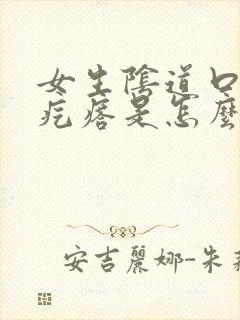 女生陰道口
疙瘩是怎麼
安吉麗娜-朱